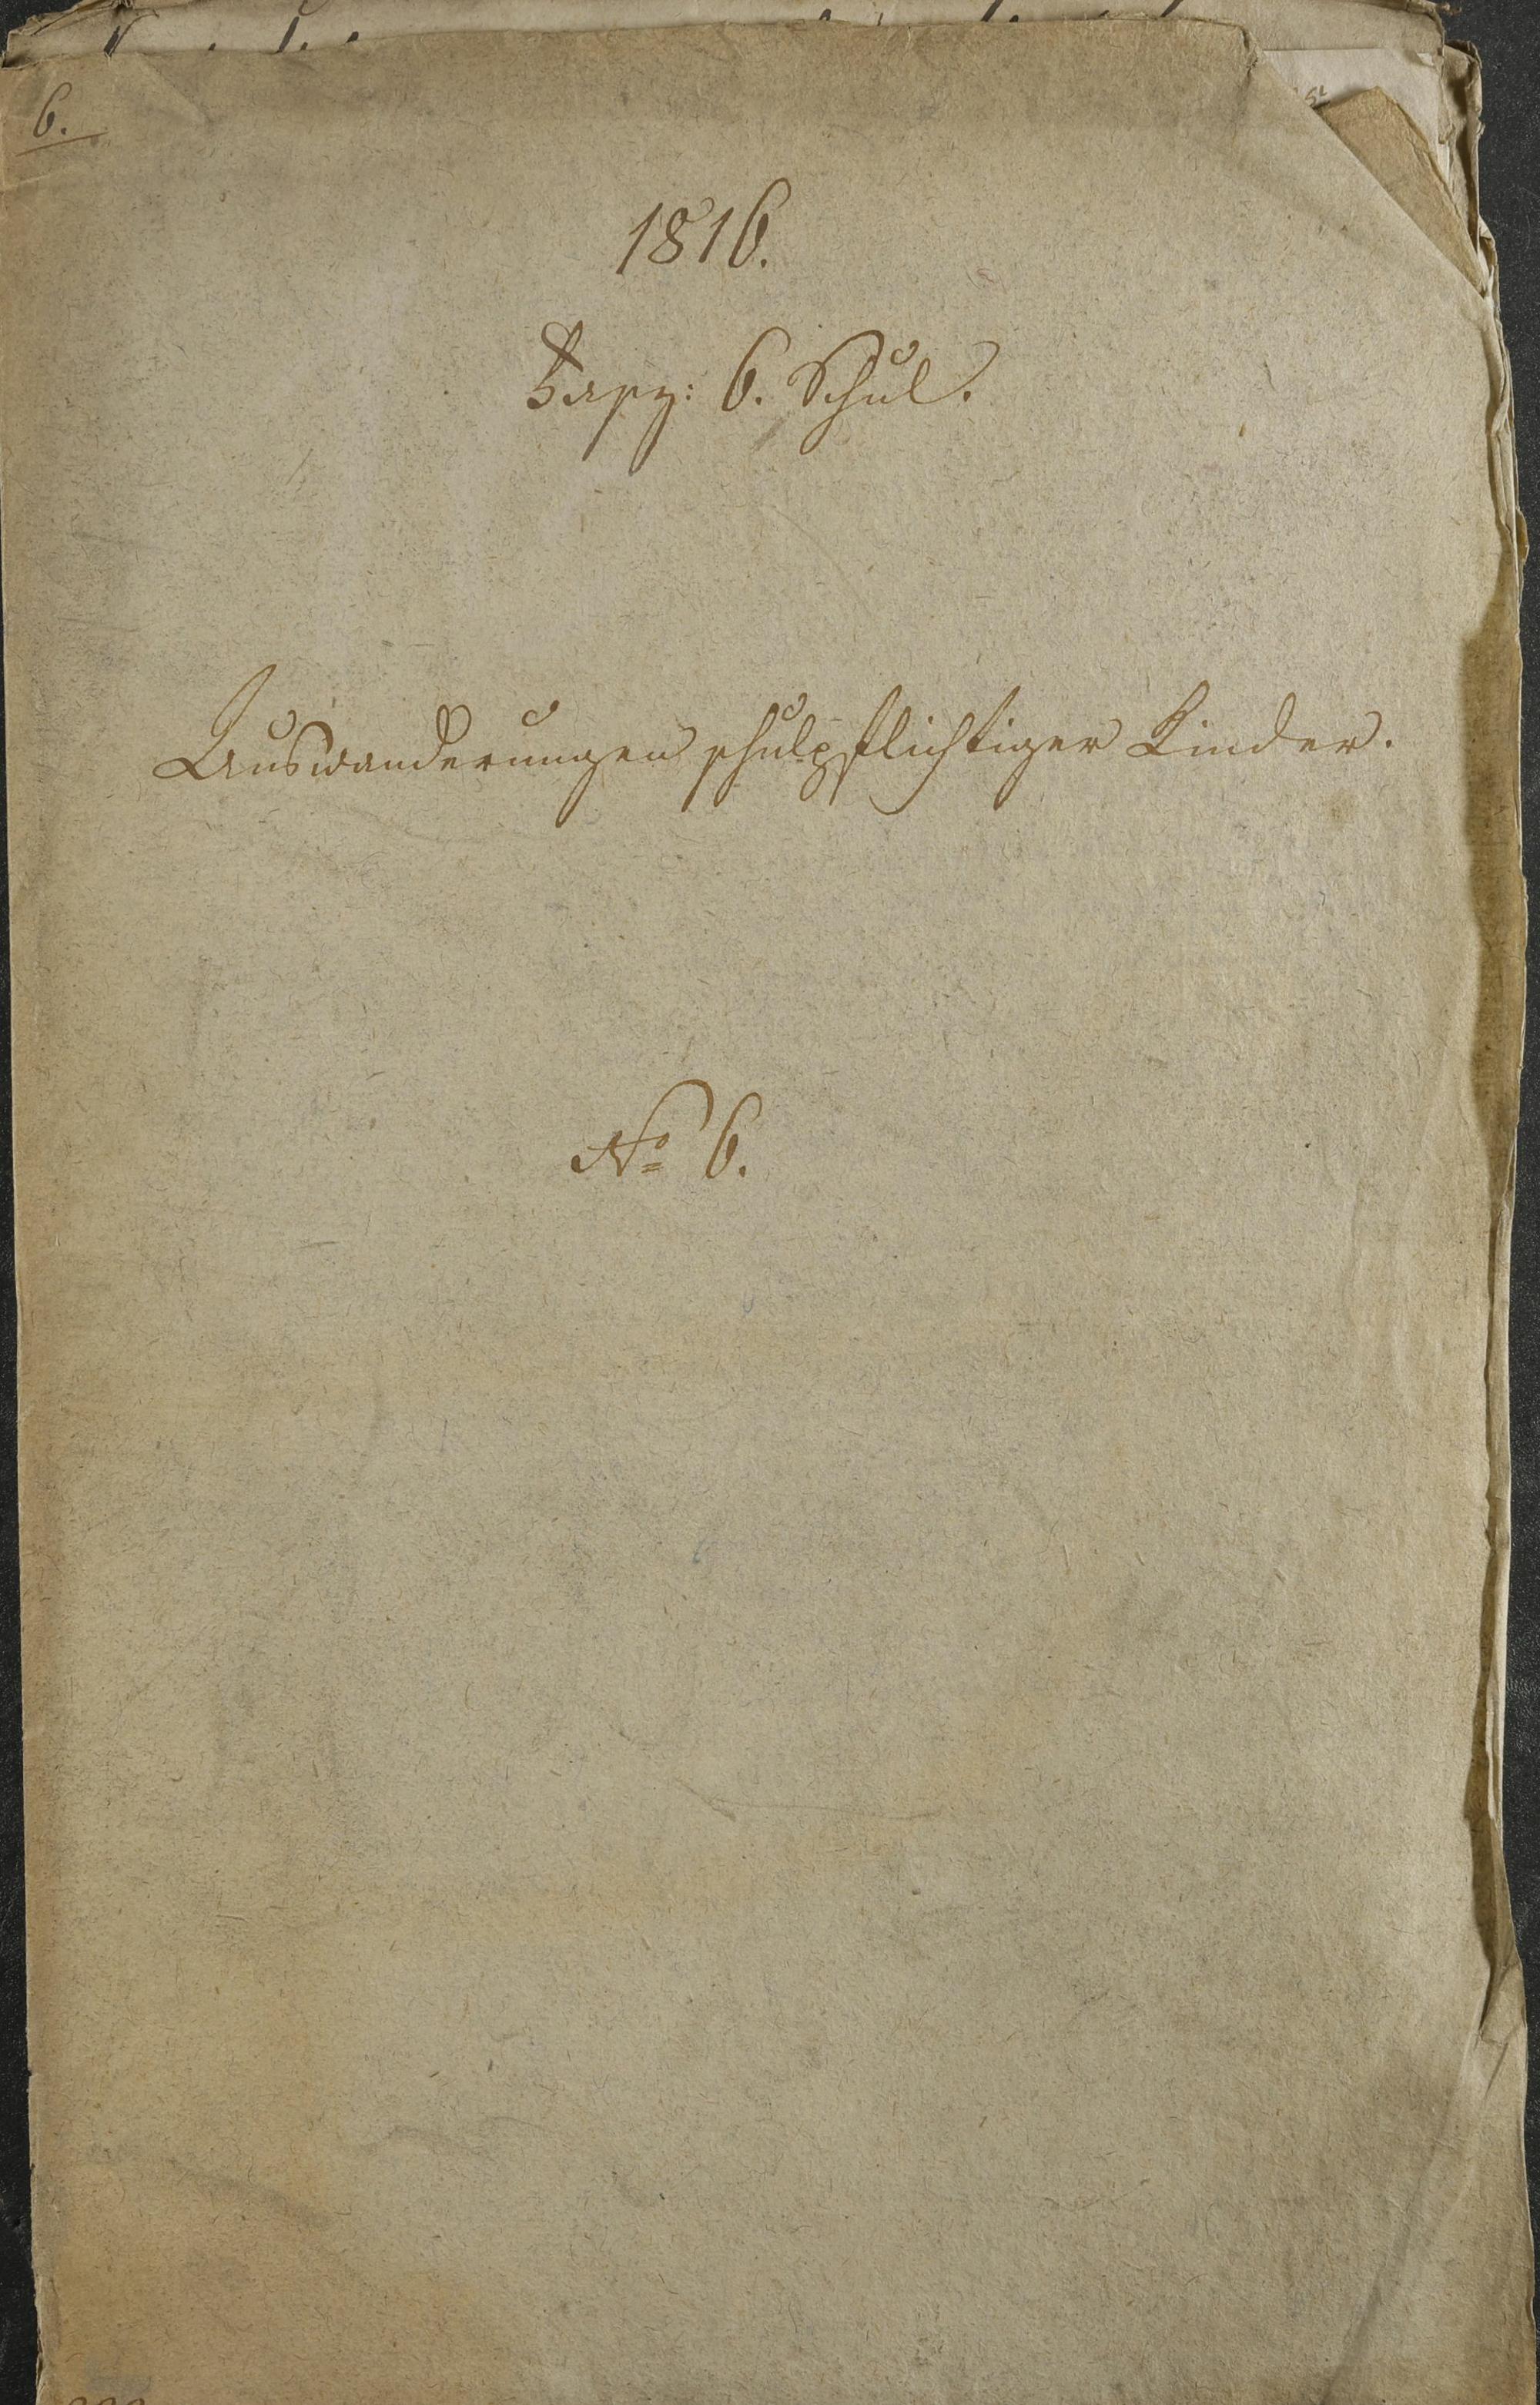 6.
1816.
Fasz: 6. Schul.
Auswanderungen schulpflichtiger Kinder.
No 6.